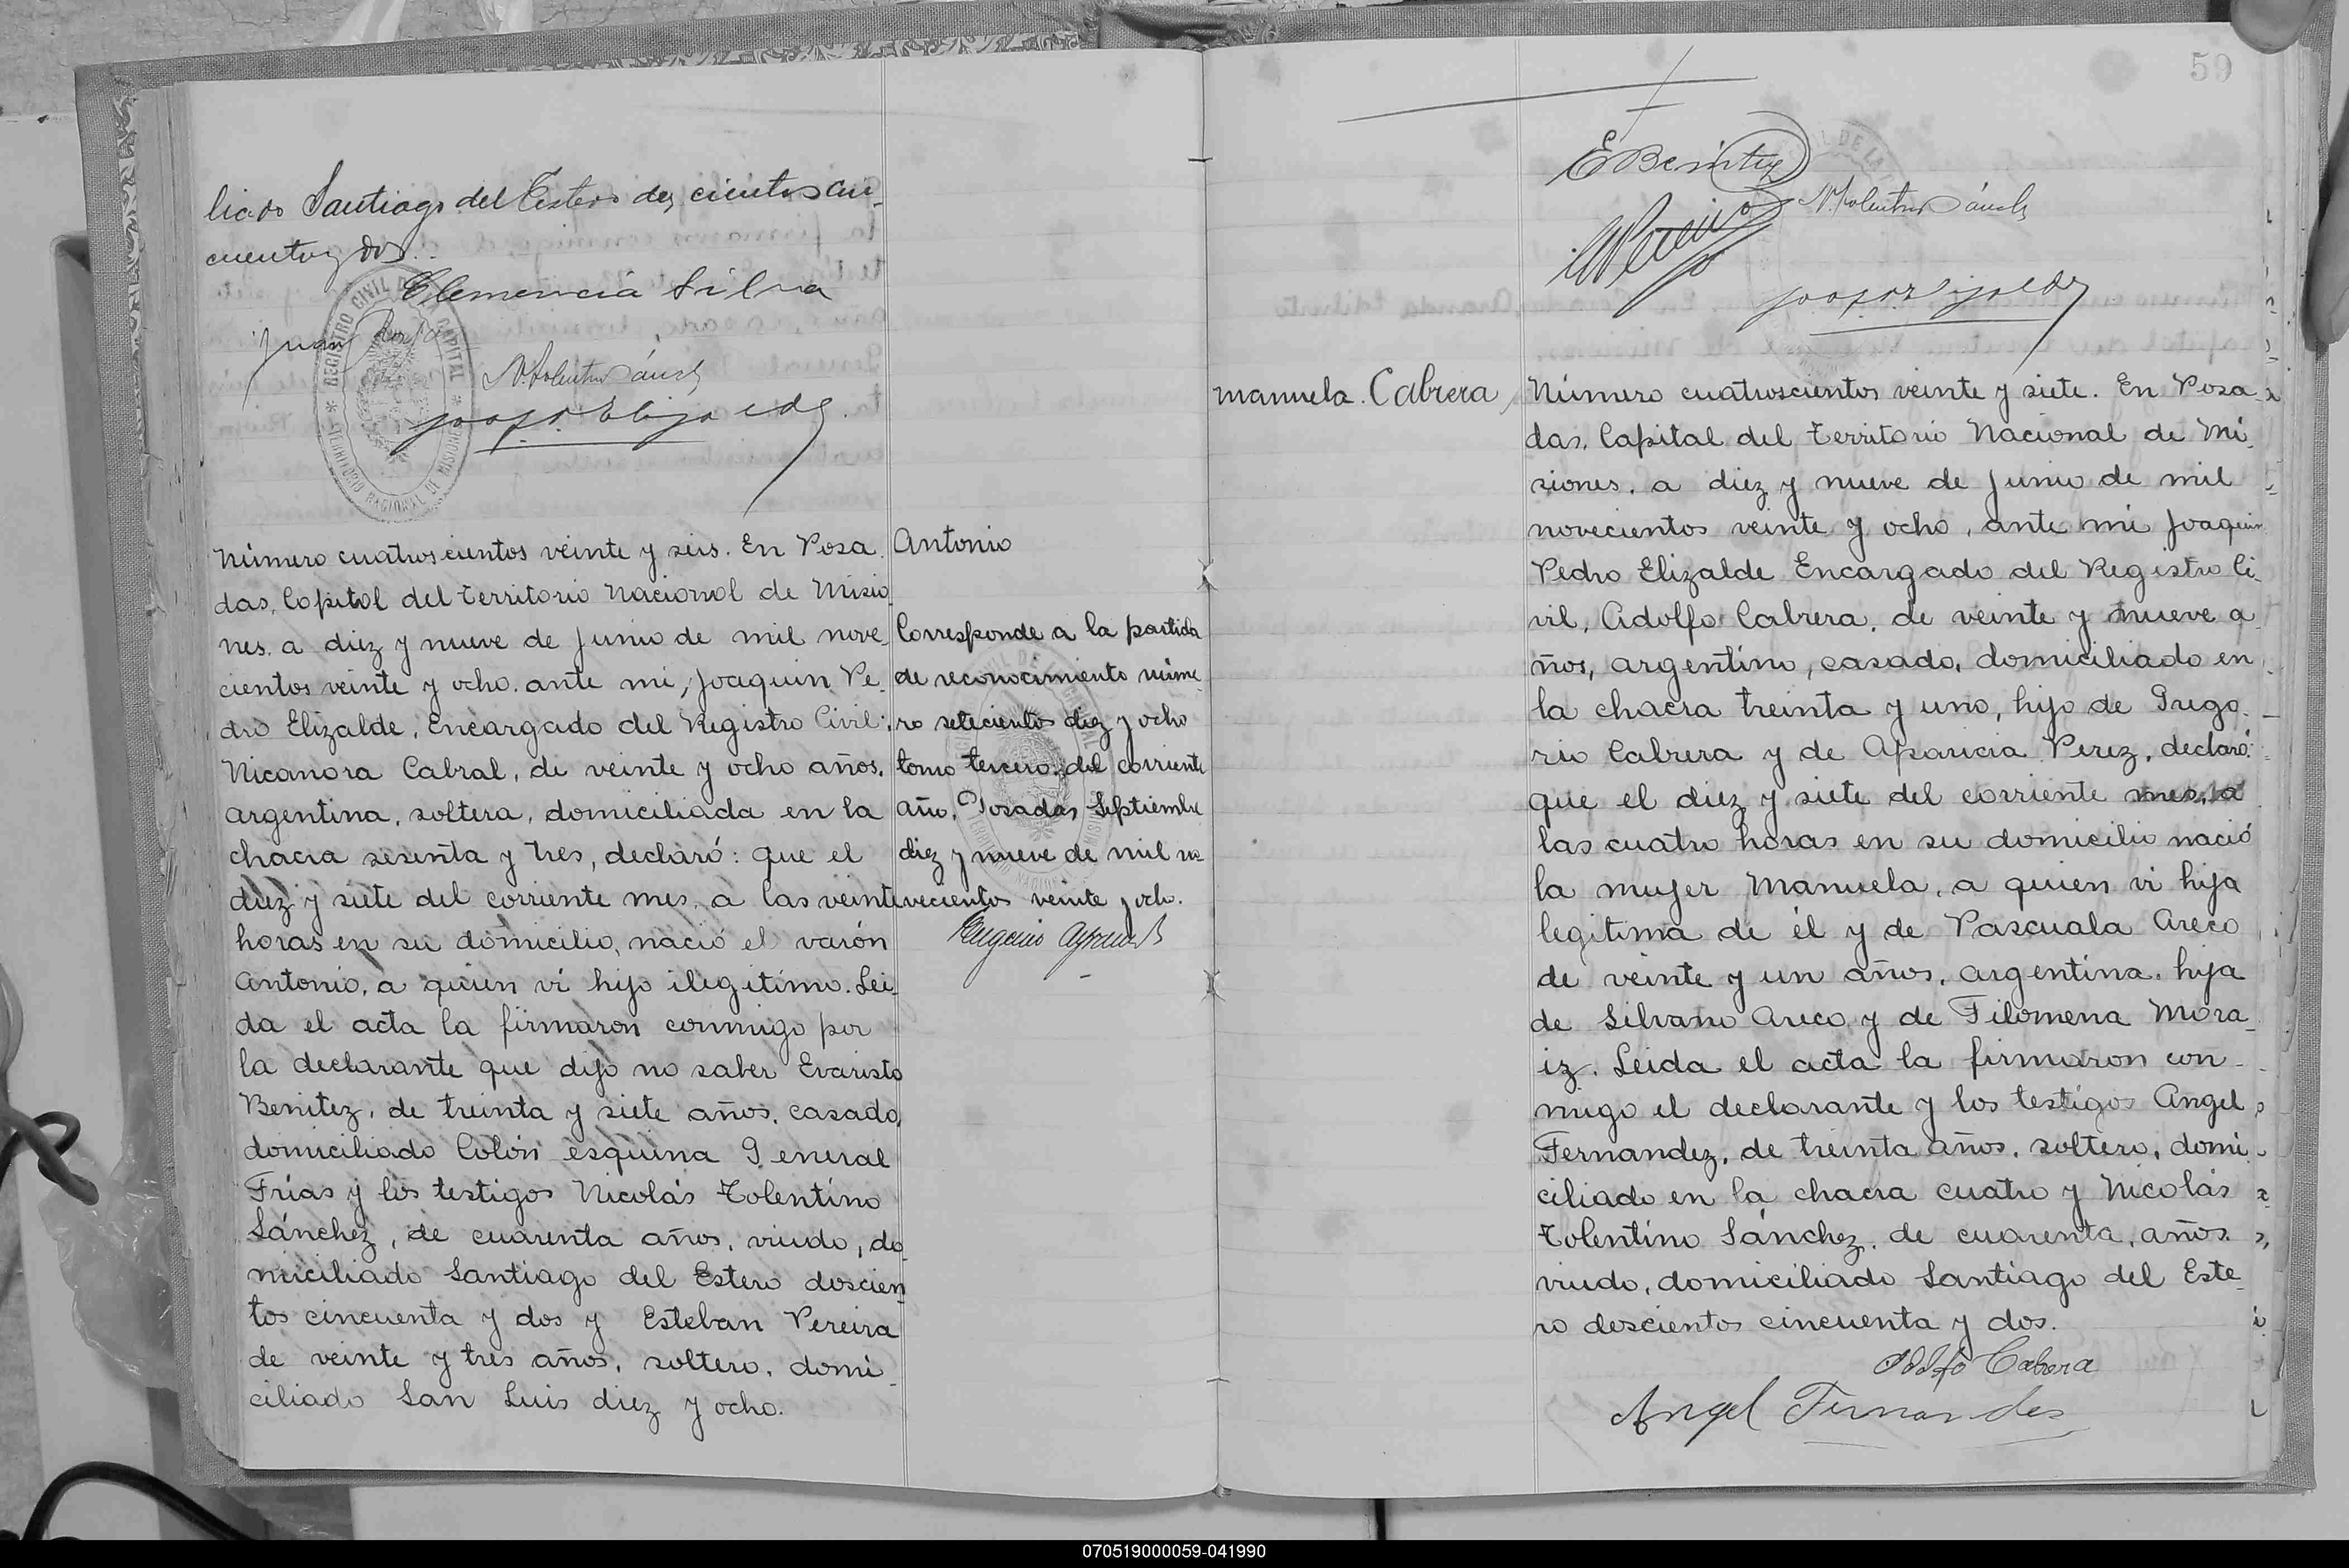 liado Santiago del Estero doscientos cin-
cuenta y dos.
Clemencia Silva
Juan
N. Tolentino Sánchez
REGISTRO CIVIL DE LA CAPITAL
TERRITORIO NACIONAL DE MISIONES
Número cuatroscientos veinte y seis. En Posa-
das, Capital del territorio Nacional de Misio-
nes, a diez y nueve de Junio de mil nove-
cientos veinte y ocho, ante mi, Joaquin Pe-
dro Elizalde, Encargado del Registro Civil:
Nicanora Cabral, de veinte y ocho años,
argentina, soltera, domiciliada en la
chacra sesenta y tres, declaró: que el
diez y siete del corriente mes, a las veinte
horas en su domicilio, nació el varón
Antonio, a quien vi hijo ilegítimo. Lei-
da el acta la firmaron conmigo por
la declarante que dijo no saber Evaristo
Benitez, de treinta y siete años, casado,
domiciliado Colón esquina General
Frías y los testigos Nicolás Tolentino
Sánchez, de cuarenta años, viudo, do-
miciliado Santiago del Estero doscien-
tos cincuenta y dos y Esteban Pereira
de veinte y tres años, soltero, domi-
ciliado San Luis diez y ocho.
Antonio
Corresponde a la partida
de reconocimiento núme-
ro setecientos diez y ocho
tomo tercero del corriente
año. Posadas Septiembre
diez y nueve de mil no-
vecientos veinte y ocho.
Eugenio
59
E Benitez
N. Tolentino Sánchez
Pereira
Manuela Cabrera
Número cuatroscientos veinte y siete. En Posa-
das, Capital del territorio Nacional de Mi-
siones, a diez y nueve de Junio de mil
novecientos veinte y ocho, ante mi Joaquin
Pedro Elizalde Encargado del Registro Ci-
vil, Adolfo Cabrera, de veinte y nueve a-
ños, argentino, casado, domiciliado en
la chacra treinta y uno, hijo de Grego-
rio Cabrera y de Aparicia Perez, declaró:
que el diez y siete del corriente mes, a
las cuatro horas en su domicilio nació
la mujer Manuela, a quien vi hija
legítima de él y de Pascuala Areco
de veinte y un años, argentina, hija
de Silvano Areco y de Filomena Mora-
iz. Leida el acta la firmaron con-
migo el declarante y los testigos Angel
Fernandez, de treinta años, soltero, domi-
ciliado en la chacra cuatro y Nicolás
Tolentino Sánchez, de cuarenta, años
viudo, domiciliado Santiago del Este-
ro doscientos cincuenta y dos.
Adolfo Cabrera
Angel Fernandes
070519000059-041990